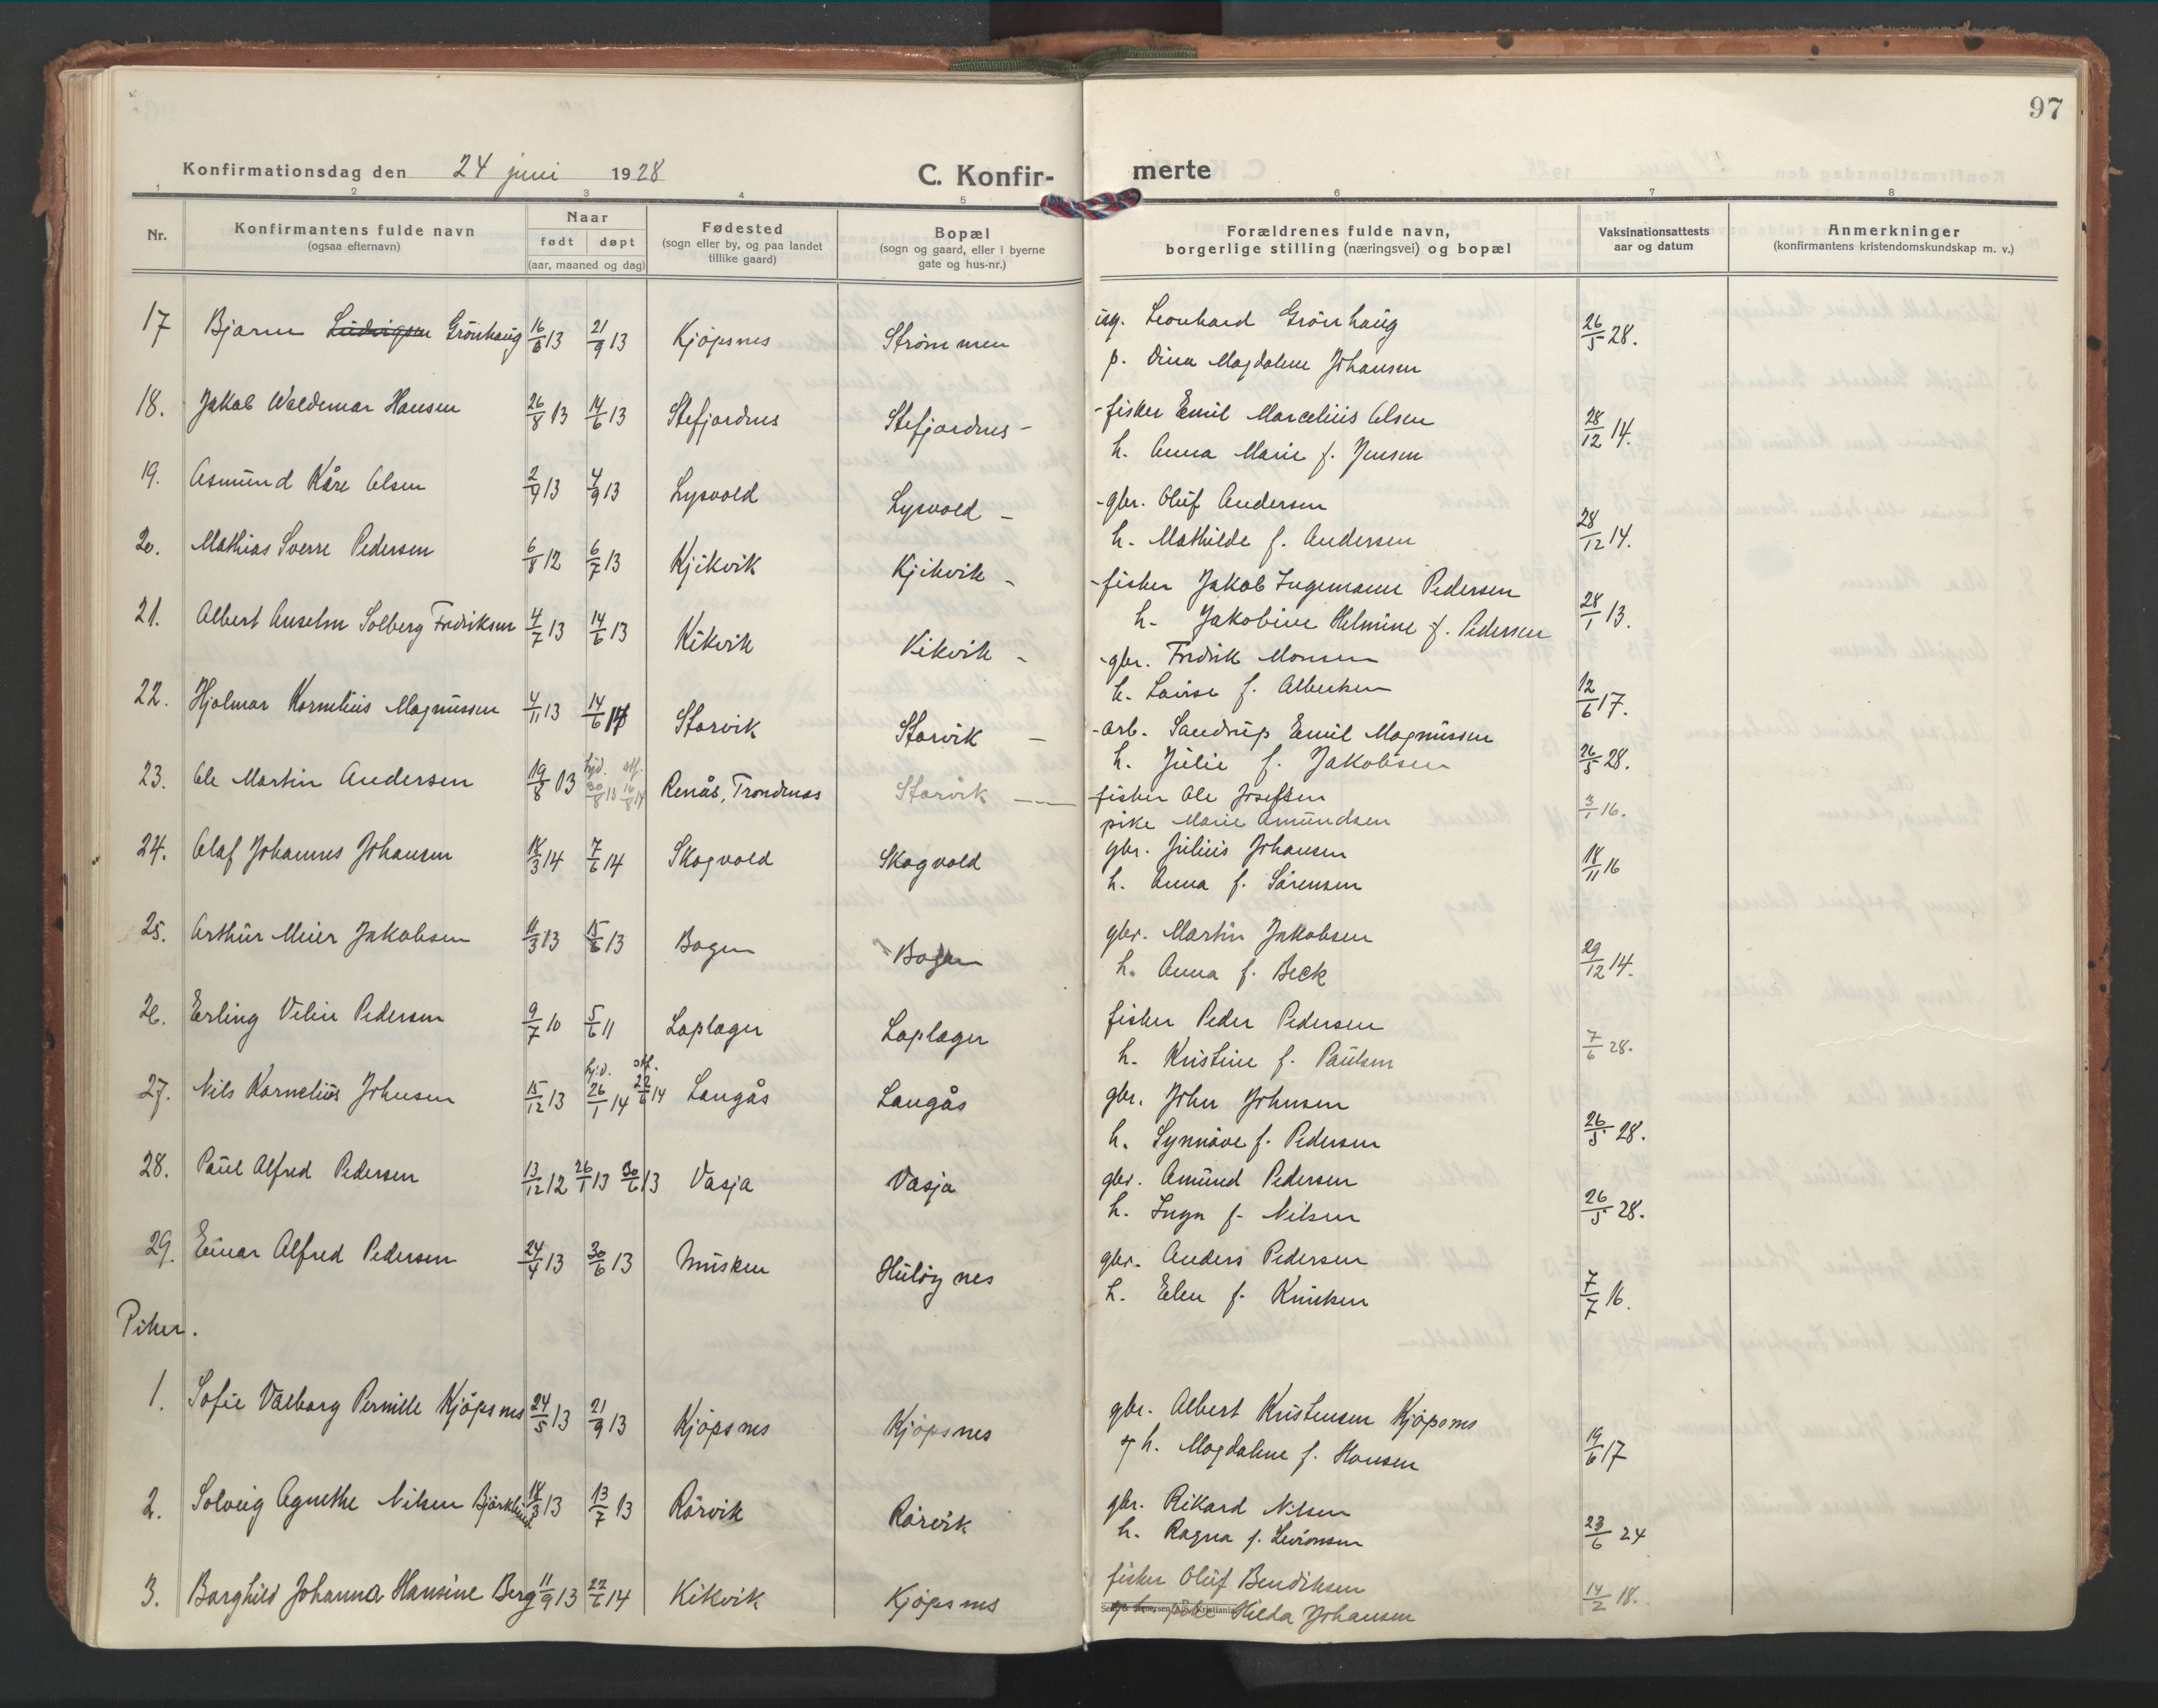 97
Konfirmationsdag den 24 juni 1928
C. Konfir- merte
1 2 3 4 5 6 7 8
Nr.
Konfirmantens fulde navn
(ogsaa efternavn)
Naar
født døpt
(aar, maaned og dag)
Fødested
(sogn eller by, og paa landet
tillike gaard)
Bopæl
(sogn og gaard, eller i byerne
gate og hus-nr.)
Forældrenes fulde navn,
borgerlige stilling (næringsvei) og bopæl
Vaksinationsattests
aar og datum
Anmerkninger
(konfirmantens kristendomskundskap m. v.)
17 Bjarne Ludvigsen Grönhaug 16/6 13 21/9 13 Kjöpsnes Strømmen ug. Leonhard Grönhaug 26/5 28.
p. Dina Magdalene Johansen
18. Jakob Waldemar Hansen 26/8 13 14/6 13 Stefjordnes Stefjordnes - - fisker Emil Marcelius Olsen 28/12 14.
h. Anna Marie f. Jensen
19. Asmund Kåre Olsen 2/4 13 4/9 13 Lysvold Lysvold - - gbr. Oluf Andersen 28/12 14.
h. Mathilde f. Andersen
20. Mathias Sverre Pedersen 6/8 12 6/7 13 Kjikvik Kjikvik - - fisker Jakob Ingemann Pedersen 28/1 13.
h. Jakobine Helmine f. Pedersen
21. Albert Anselm Solberg Fredriksen 4/7 13 14/6 13 Kikvik Kikvik - - gbr. Fredrik Monsen 12/6 17.
h. Lovise f. Albertsen
22. Hjalmar Kornelius Magnussen 4/11 13 14/6 14 Storvik Storvik - - arb. Sandrup Emil Magnussen 26/5 28.
h. Julie f. Jakobsen
23. Ole Martin Andersen 19/8 13 hjd. 30/8 13 stf. 16/8 14 Renås, Trondenes Storvik - fisker Ole Josefsen 3/1 16.
pike Marie Amundsen
24. Olaf Johannes Johansen 18/3 14 7/6 14 Skogvold Skogvold gbr. Julius Johansen 18/11 16
h. Anna f. Sörensen
25. Arthur Meier Jakobsen 11/3 13 15/6 13 Bogen Bogen gbr. Martin Jakobsen 29/12 14.
h. Anna f. Beck
26. Erling Vilin Pedersen 9/7 10 5/6 11 Laplager Laplager fisker Peder Pedersen 7/6 28.
h. Kristine f. Paulsen
27. Nils Kornelius Johnsen 15/12 13 hjd. 26/1 14 stf. 22/6 14 Langås Langås gbr. John Johnsen 26/5 28.
h. Synnöve f. Pedersen
28. Paul Alfred Pedersen 13/12 12 26/1 13 30/6 13 Vasja Vasja gbr. Amund Pedersen 26/5 28.
h. Inga f. Nilsen
29. Einar Alfred Pedersen 24/4 13 30/6 13 Musken Hulöynes gbr. Anders Pedersen 7/7 16.
h. Elen f. Knutsen
Piker.
1. Sofie Valborg Pernille Kjöpsnes 24/5 13 21/9 13 Kjöpsnes Kjöpsnes gbr. Albert Kristensen Kjöpsnes 19/6 17
og h. Magdalene f. Hansen
2. Solveig Agnethe Nilsen Björklund 18/3 13 13/7 13 Rörvik Rörvik gbr. Rikard Nilsen 23/6 24
h. Ragna f. Levionsen
3. Borghild Johanna Hansine Berg 11/9 13 22/6 14 Kikvik Kjöpsnes fisker Oluf Bendiksen 14/2 18.
pike Hilda Johansen